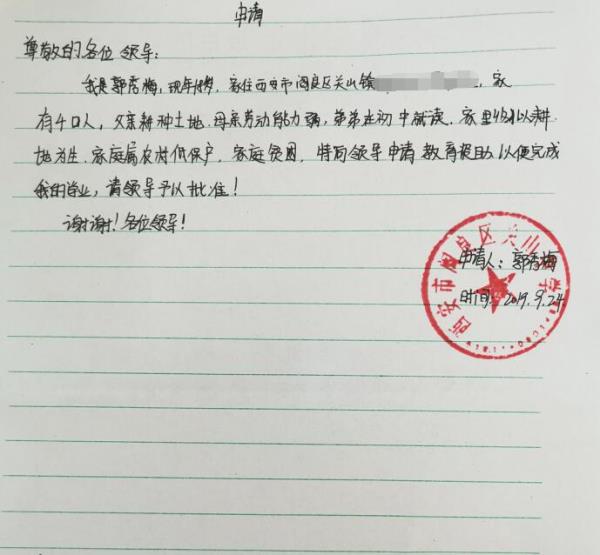 申请
尊敬的各位领导:
我是郭秀梅,现年岁,家住西安市阎良区关山镇,家
有4口人,父亲耕种土地.母亲劳动能力弱,弟弟在初中就读.家里均以耕
地为生.家庭属农村低保户,家庭贫困,特向领导申请教育资助以便完成
我的学业,请领导予以批准!
谢谢!各位领导!
申请人:郭秀梅
时间:2019.9.24
西安市阎良区关山学